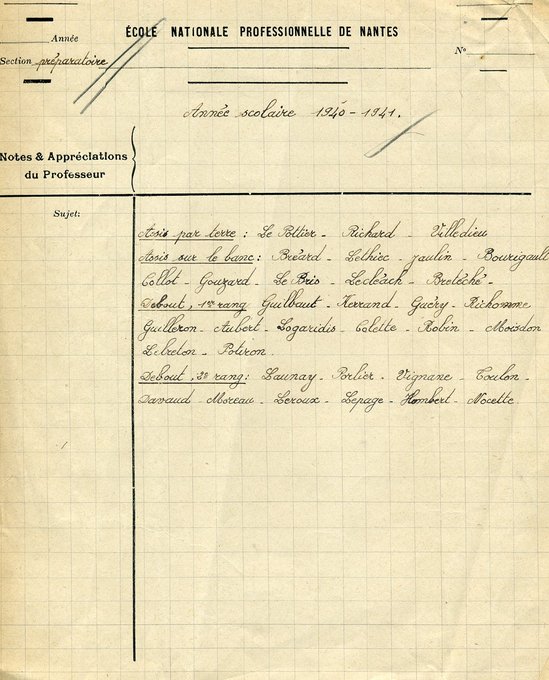 ÉCOLE NATIONALE PROFESSIONNELLE DE NANTES
Année
Section préparatoire
N°
Année scolaire 1940-1941.
Notes & Appréciations
du Professeur
Sujet:
Assis par terre : Le Pottier - Richard - Villedieu
Assis sur le banc : Bréard - Lethiec - Jaulin - Bourigault
Collot - Gouzard - Le Bris - Lecléach - Bretéché -
Debout, 1er rang Guilbaut - Kerrand - Guéry - Richomme
Guilleron - Aubert - Logaridis - Colette - Robin - Moisdon
Lebreton - Potiron.
Debout, 2e rang : Launay - Porlier - Vignane - Toulon -
Davaud - Moreau - Leroux - Lepage - Hombert - Nocette